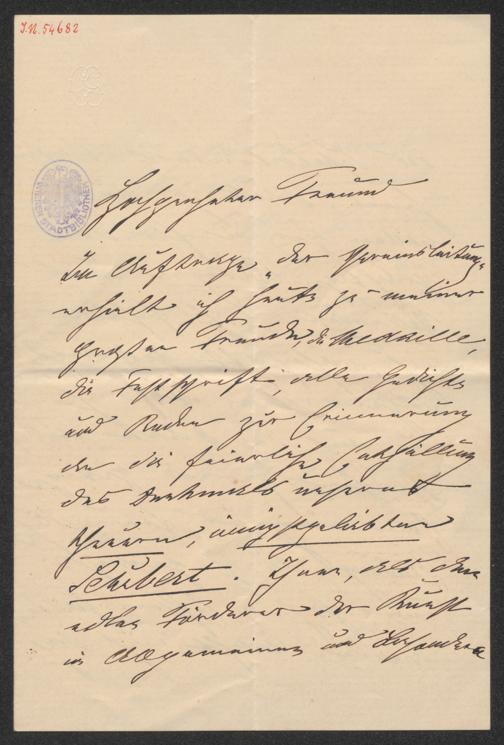 I.N. 54682
WIENER STADTBIBLIOTHEK
Hochgeehrter Freund
Im Auftrage „der Vereinsleitung“
erhielt ich heute zu meiner
großen Freude, die Medaille,
die Festschrift, alle Gedichte
und Reden zur Erinnerung
an die feierliche Enthüllung
des Denkmals unseres
theuren, innigstgeliebten
Schubert. Ihnen, als dem
edlen Förderer der Kunst
im Allgemeinen und besonders